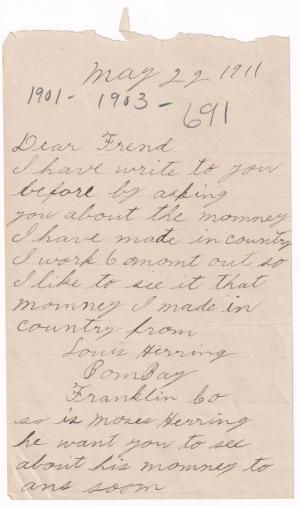 May 22 1911
1901 - 1903 - 691
Dear Frend
I have write to you
before by asking
you about the momney
I have made in country
I work 6 momt out so
I like to see it that
momney I made in
country from
Louis Herring
BomBay
Franklin Co
so is Moses Herring
he want you to see
about his momney to
ans soom